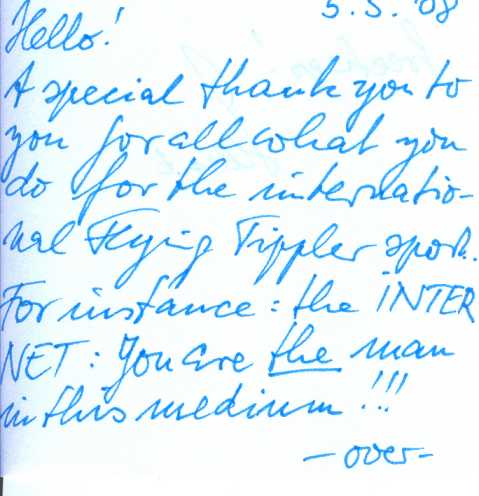 5.5.'08
Hello!
A special thank you to
you for all what you
do for the internatio-
nal Flying Tippler sport.
For instance: the INTER
NET: You are the man
in this medium!!!
-over-